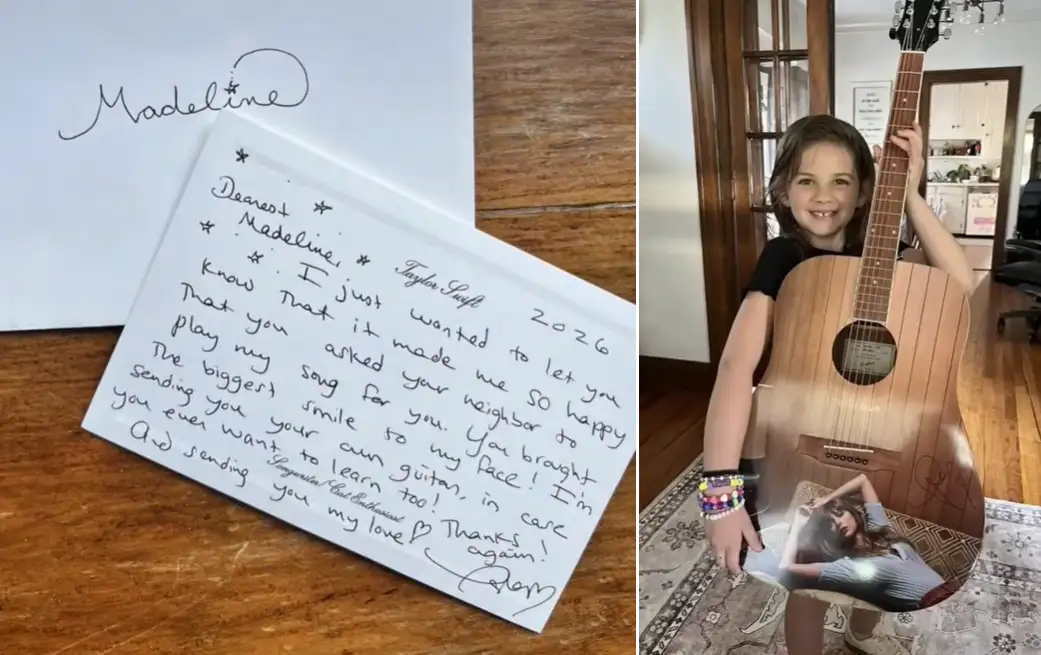 Madeline
Dearest
Madeline,
Taylor Swift
2026
I just wanted to let you
know that it made me so happy
that you asked your neighbor to
play my song for you. You brought
the biggest smile to my face! I'm
sending you your own guitar, in case
you ever want to learn too!
Songwriter/Cat Enthusiast
Thanks
again!
And sending you my love